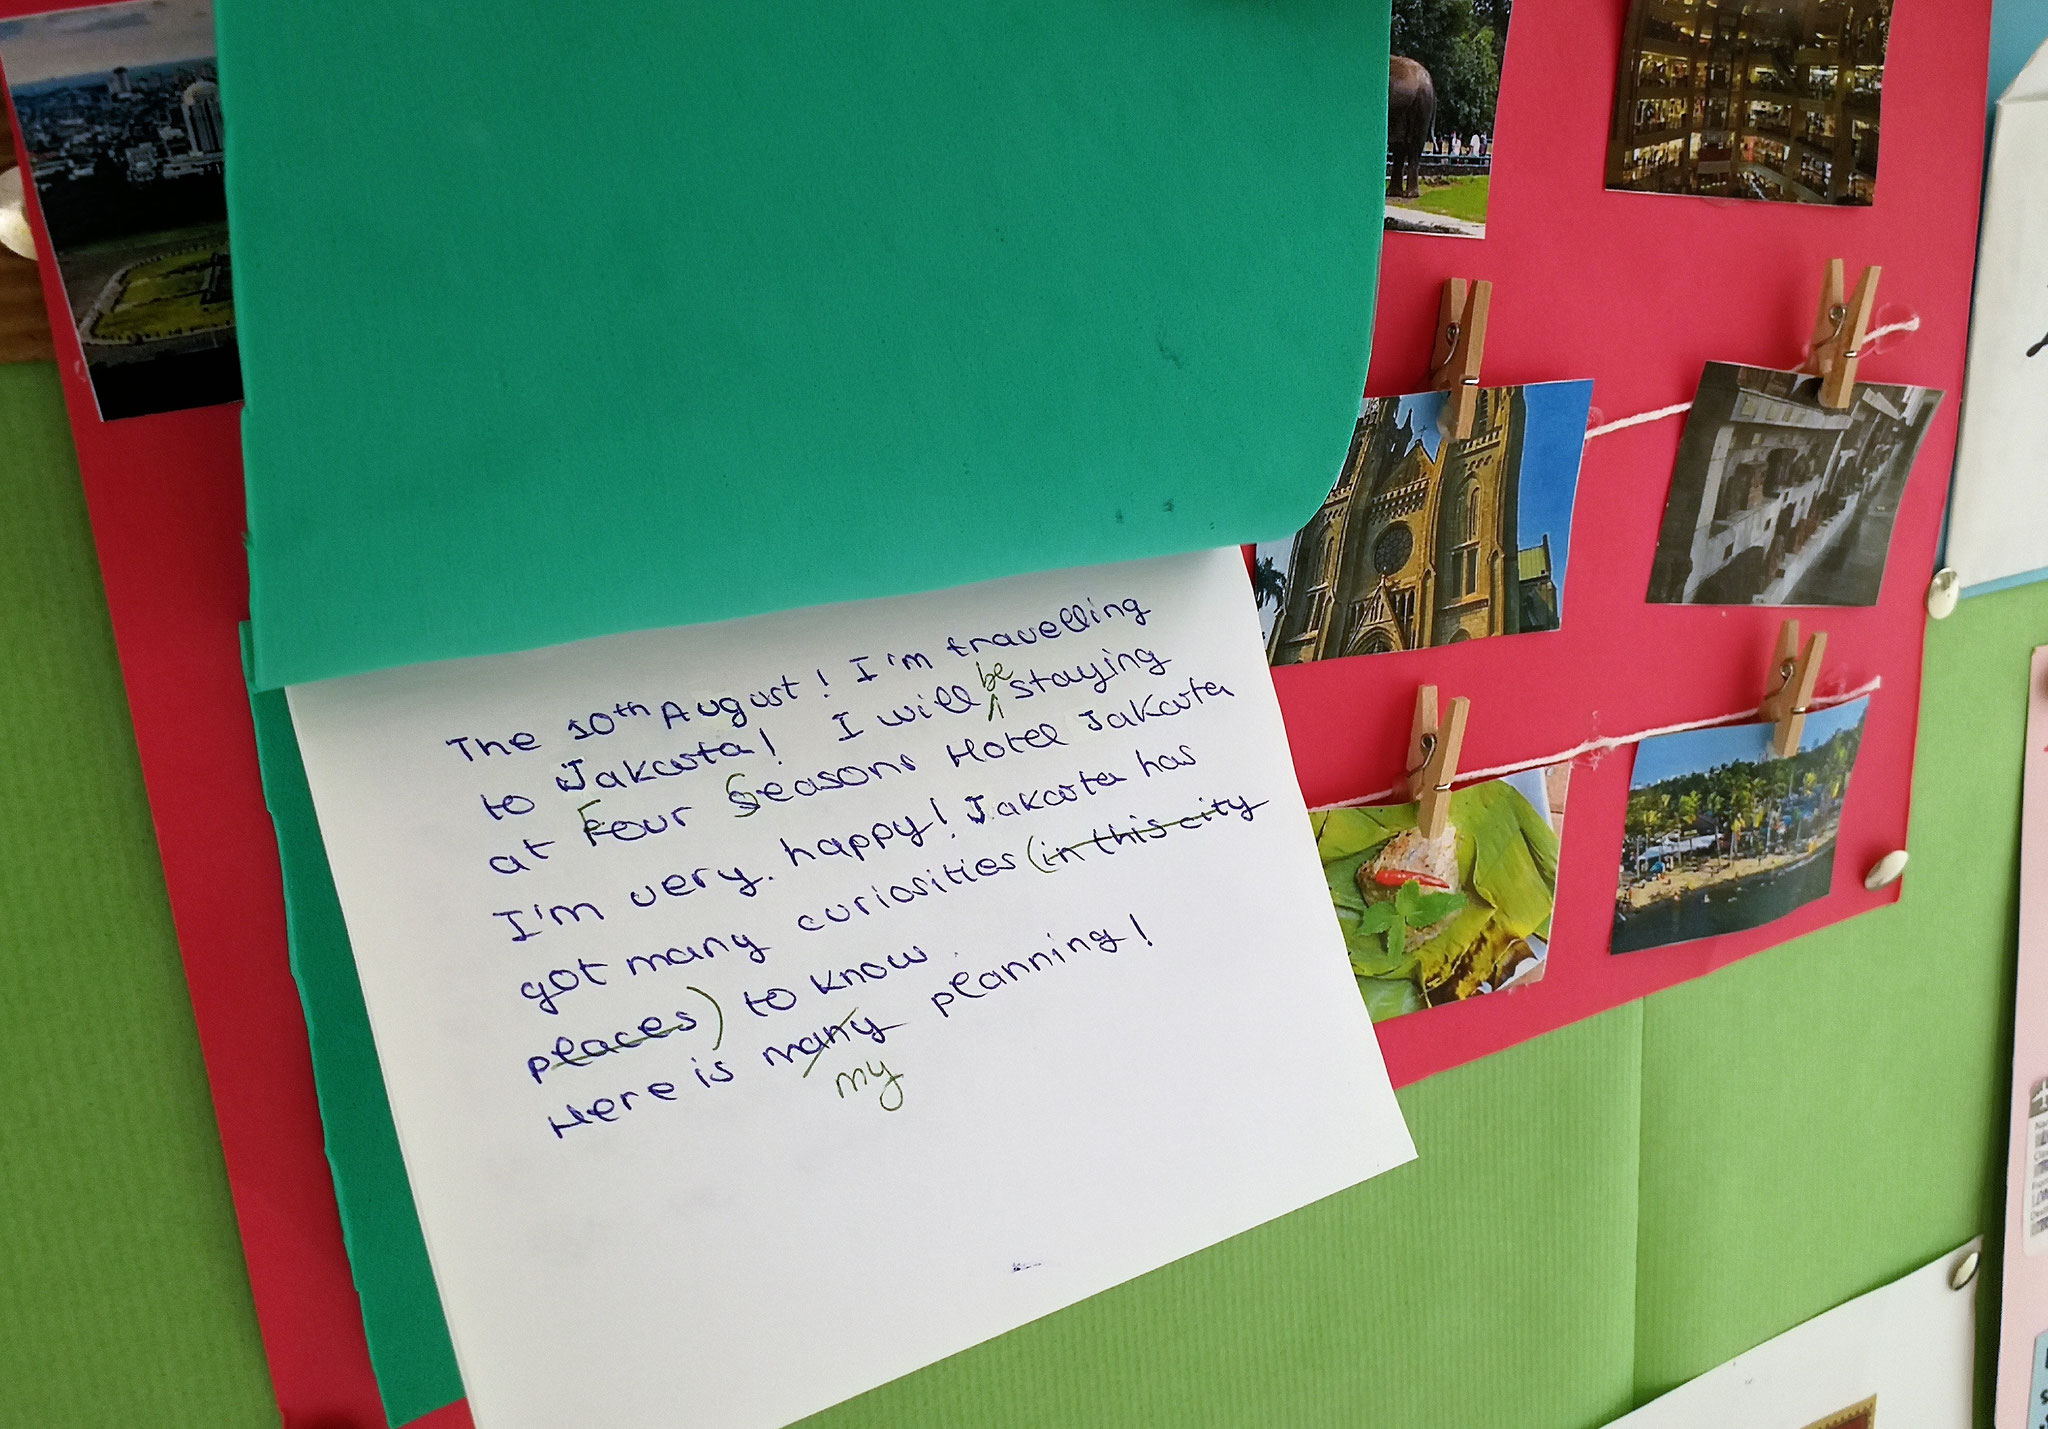 The 10th August! I'm travelling
to Jakarta! I will be staying
at Four Seasons Hotel Jakarta
I'm very. happy! Jakarta has
got many curiosities (in this city
places) to know.
Here is many planning!
my